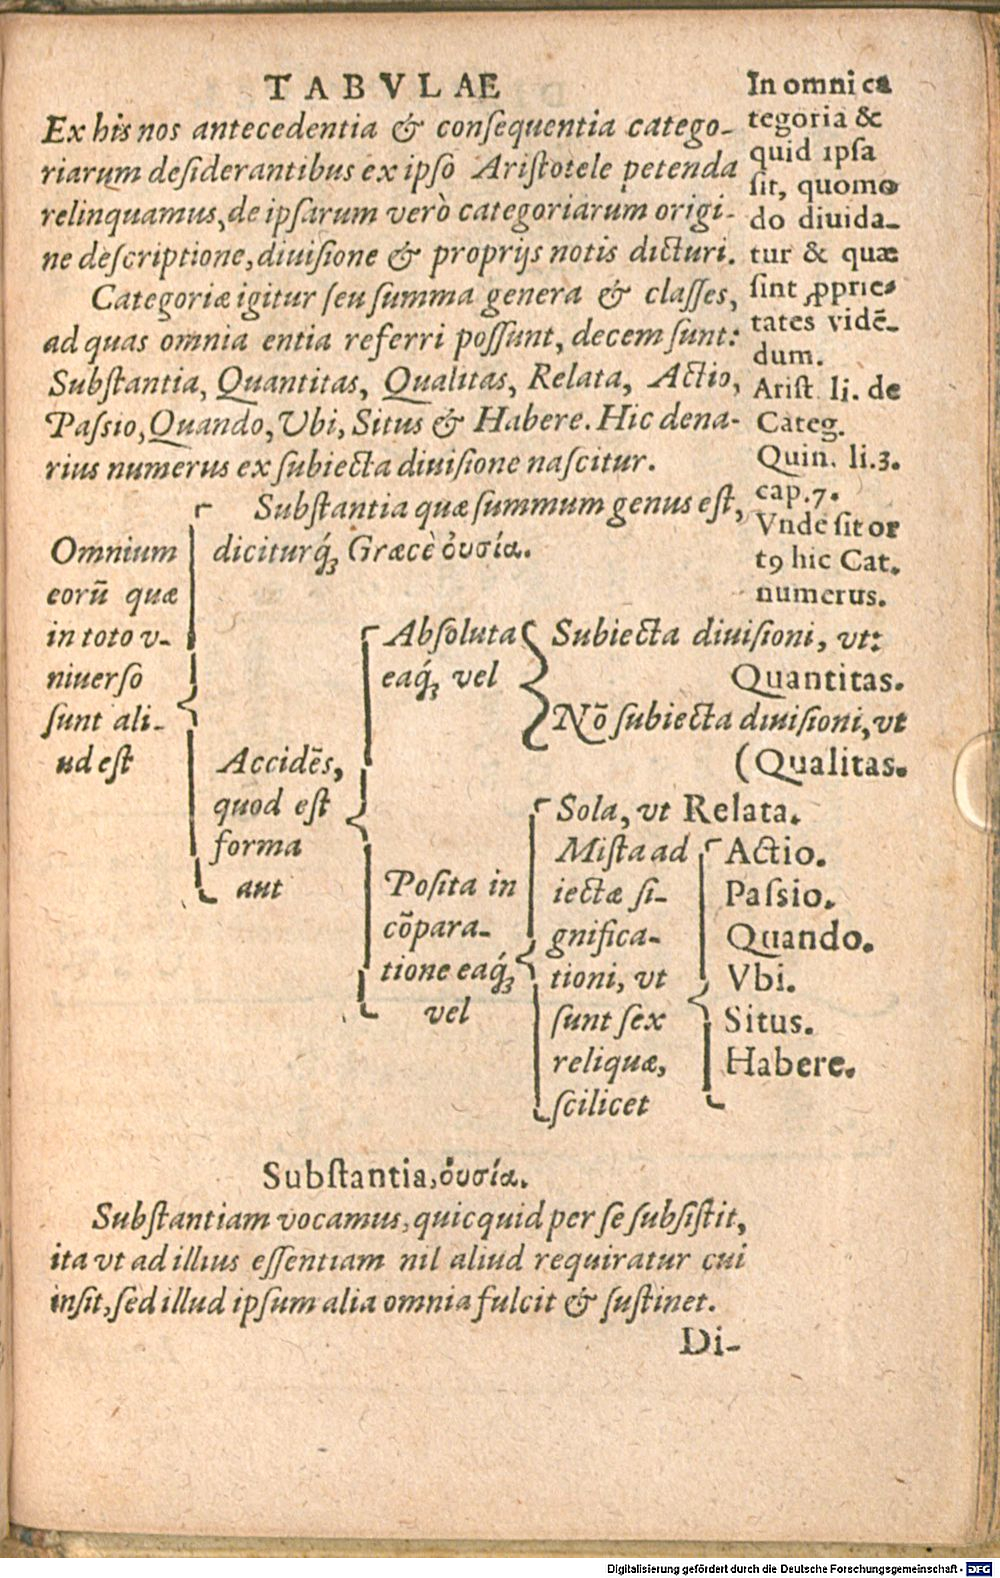 TABVLAE
Ex his nos antecedentia & consequentia catego-
riarum desiderantibus ex ipso Aristotele petenda
relinquamus, de ipsarum verò categoriarum origi-
ne descriptione, diuisione & proprijs notis dicturi.
Categoriæ igitur seu summa genera & classes,
ad quas omnia entia referri possunt, decem sunt:
Substantia, Quantitas, Qualitas, Relata, Actio,
Passio, Quando, Vbi, Situs & Habere. Hic dena-
rius numerus ex subiecta diuisione nascitur.
In omni ca
tegoria &
quid ipsa
sit, quomo
do diuida-
tur & quæ
sint ꝓprie-
tates vidē-
dum.
Arist li. de
Categ.
Quin. li.3.
cap.7.
Vnde sit or
tꝰ hic Cat.
numerus.
Omnium
eorū quæ
in toto v-
niuerso
sunt ali-
ud est
Substantia quæ summum genus est,
diciturq́; Græcè ὀυσία.
Accidēs,
quod est
forma
aut
Absoluta
eaq́; vel
Subiecta diuisioni, vt:
Quantitas.
Nō subiecta diuisioni, vt
(Qualitas.
Posita in
cōpara-
tione eaq́;
vel
Sola, vt Relata.
Mista ad
iectæ si-
gnifica-
tioni, vt
sunt sex
reliquæ,
scilicet
Actio.
Passio.
Quando.
Vbi.
Situs.
Habere.
Substantia, ὀυσία.
Substantiam vocamus, quicquid per se subsistit,
ita vt ad illius essentiam nil aliud requiratur cui
insit, sed illud ipsum alia omnia fulcit & sustinet.
Di-
Digitalisierung gefördert durch die Deutsche Forschungsgemeinschaft - DFG